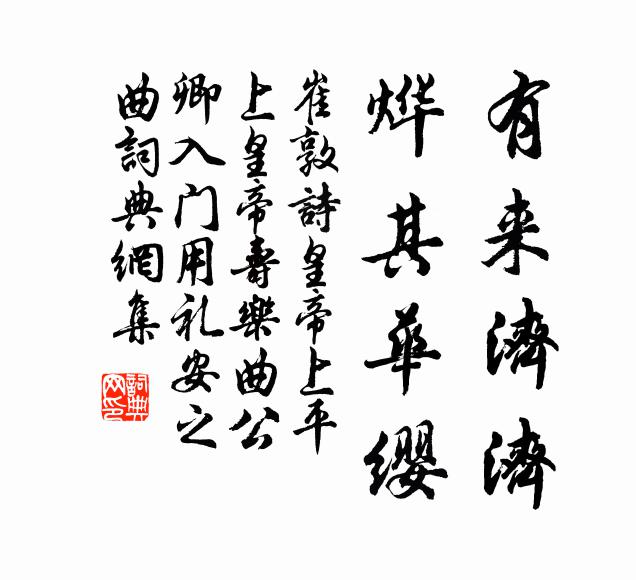 有来濟濟
烨其華缨
崔敦詩皇帝上平
上皇帝壽樂曲公
卿入门用礼安之
曲詞典網集
詞典
网印